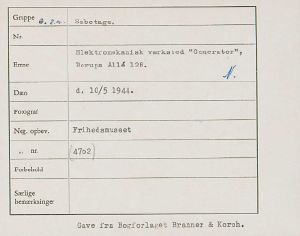 Gruppe Sabotage.
Nr.
Elektromekanisk værksted "Generator",
Emne Borups Allé 128.
N.
Dato d. 10/5 1944.
Fotograf
Neg. opbev. Frihedsmuseet
„ nr. (4702)
Forbehold
Særlige
bemærkninger
Gave fra Bogforlaget Branner & Korch.